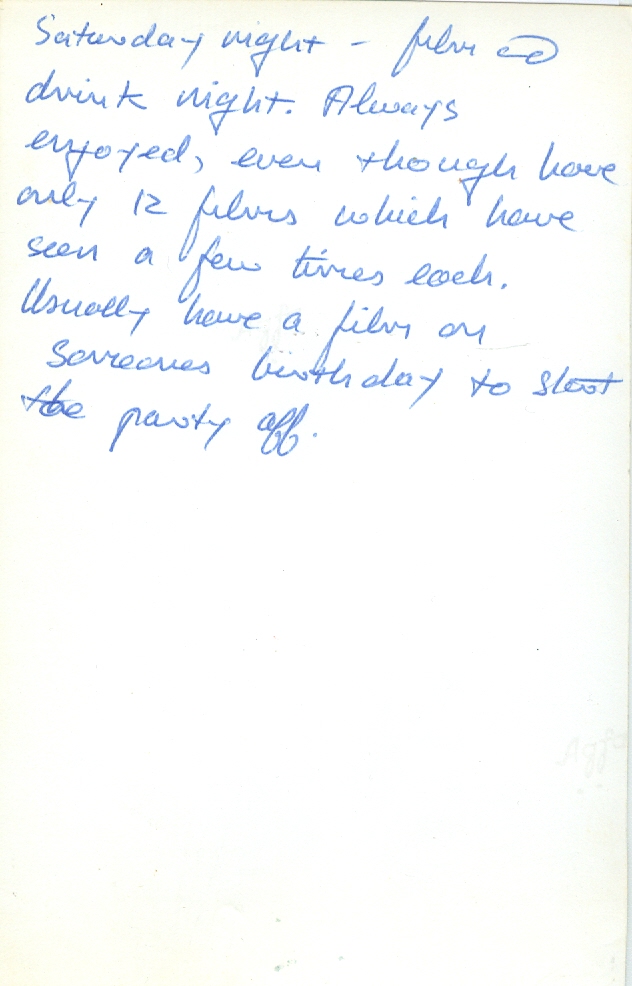 Saturday night - film
drink night. Always
enjoyed, even though have
only 12 films which have
seen a few times each.
Usually have a film on
Someones birthday to start
the party off.